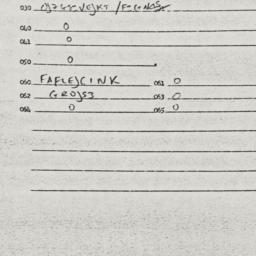 030
040 0
041 0
050 0
060 FAFLEJCINK 061 0
062 GROJS3 063 0
064 0 065 0